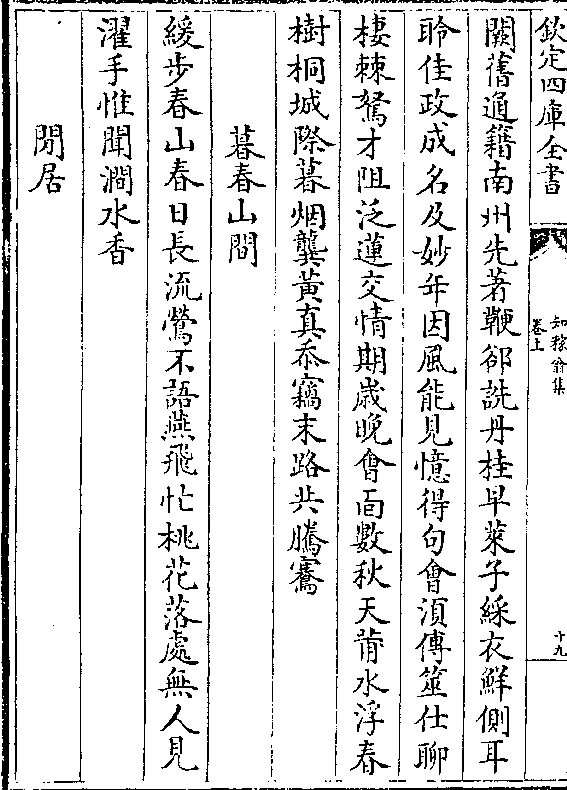 欽定四庫全書
知稼翁集
卷上
十九
闕舊通籍南州先著鞭郤詵丹桂早萊子綵衣鮮側耳
聆佳政成名及妙年因風能見憶得句會湏傳筮仕聊
棲棘駑才阻泛蓮交情期歲晚會面數秋天莆水浮春
樹桐城際暮烟龔黃真忝竊末路共騰騫
暮春山間
緩步春山春日長流鶯不語燕飛忙桃花落處無人見
濯手惟聞澗水香
閒居